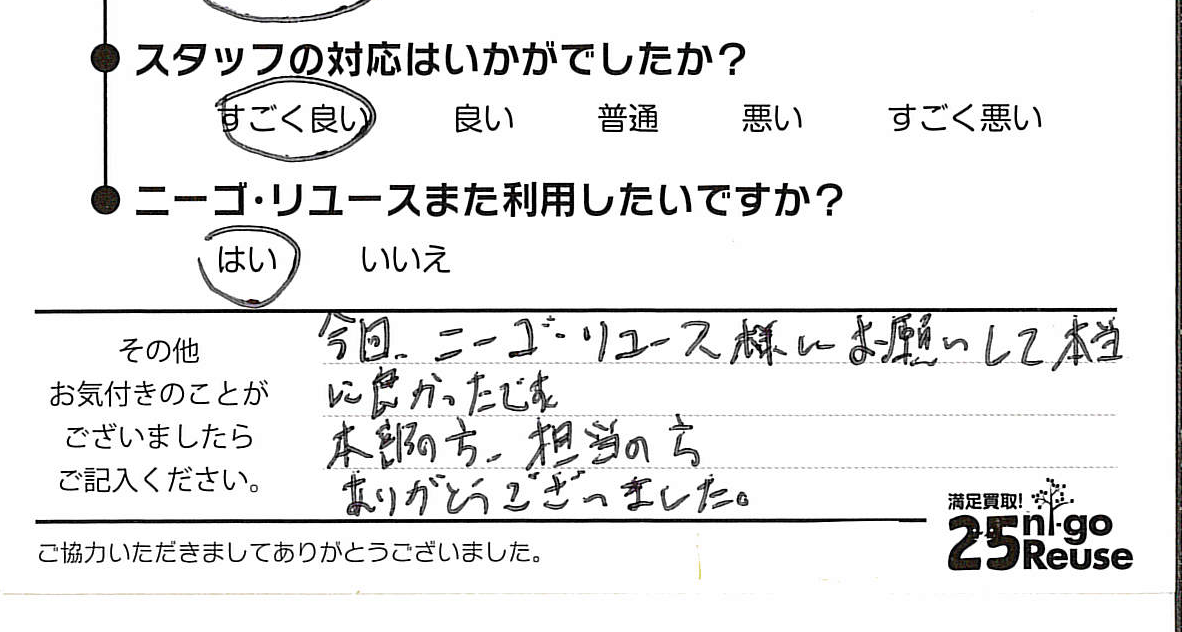 スタッフの対応はいかがでしたか?
すごく良い 良い 普通 悪い すごく悪い
ニーゴ・リユースまた利用したいですか?
はい いいえ
その他
お気付きのことが
ございましたら
ご記入ください。
今回、ニーゴ・リユース様にお願いして本当
に良かったです
本部の方、担当の方
ありがとうございました。
満足買取!
25 ni-go
Reuse
ご協力いただきましてありがとうございました。